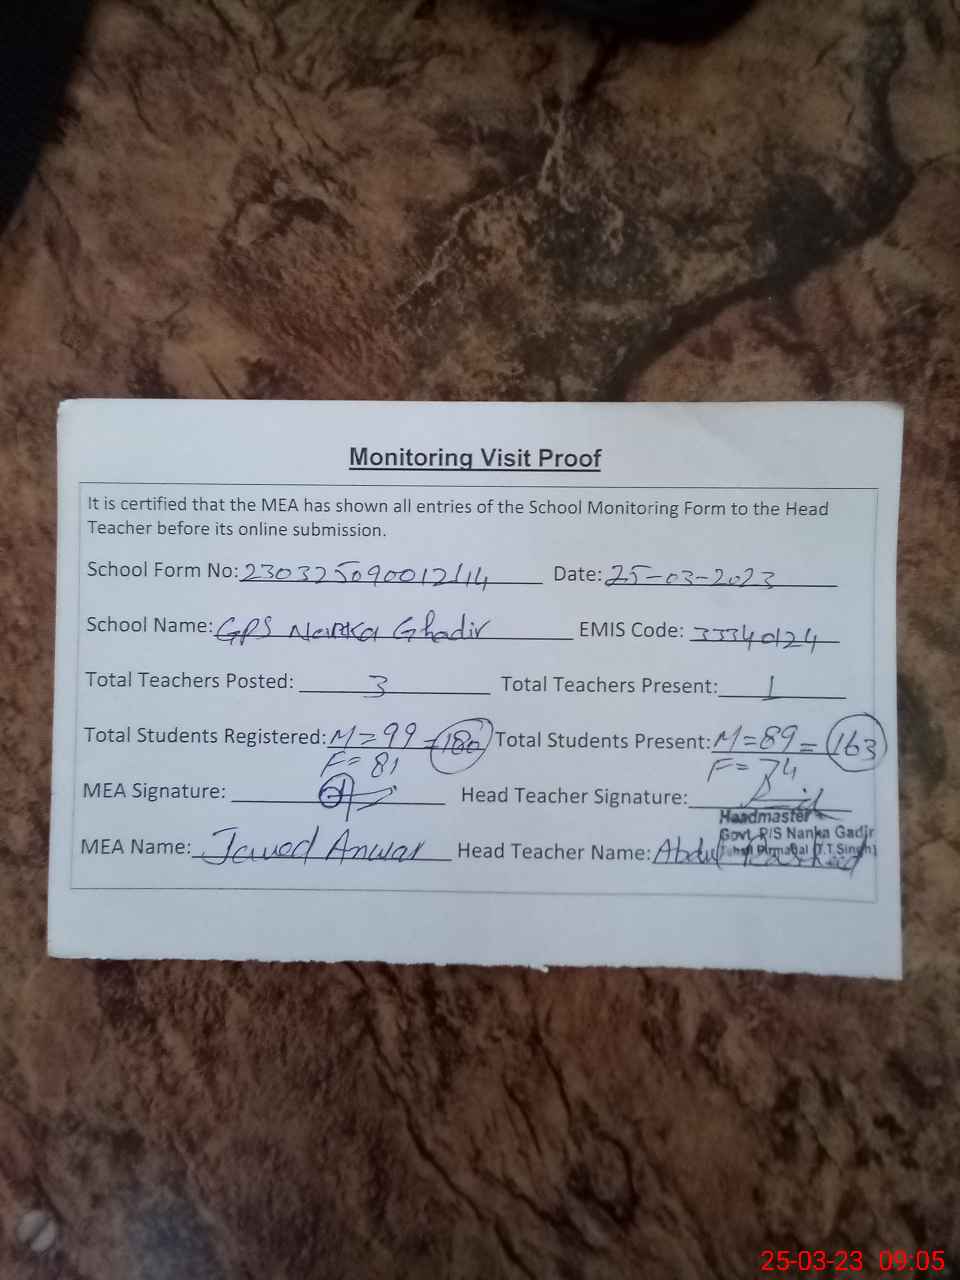 Monitoring Visit Proof
It is certified that the MEA has shown all entries of the School Monitoring Form to the Head
Teacher before its online submission.
School Form No: 230325090012114 Date: 25-03-2023
School Name: GPS Nanka Ghadir EMIS Code: 33340124
Total Teachers Posted: 3 Total Teachers Present: 1
Total Students Registered: M=99 =180 Total Students Present: M=89= 163
F=81 F=74
MEA Signature: Head Teacher Signature:
Headmaster
Govt. P/S Nanka Gadir
Pirmahal (T.T.Singh)
MEA Name: Javed Anwar Head Teacher Name: Abdul Rasheed
25-03-23 09:05